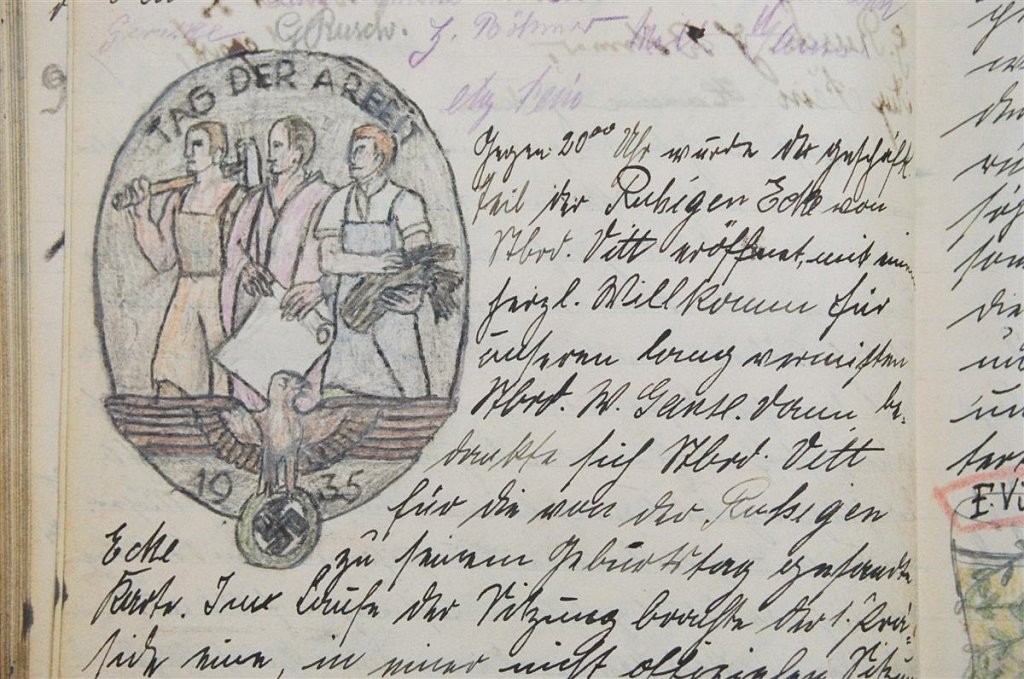 G. Rusch. H. Böhmer
TAG DER ARBEIT
1935
Gegen 20⁰⁰ Uhr wurde der geschäft
teil der Ruhigen Ecke von
Stbrd. Vitt eröffnet, mit ein
herzl. Willkomm für
unseren lang vermißten
Stbrd. W. Ganse. Dann be-
dankte sich Stbrd. Vitt
für die von der Ruhigen
Ecke zu seinem Geburtstag gesandte
Karte. Im Laufe der Sitzung brachte der 1. Prä-
side eine, in einer nicht offiziellen Sitzun
E. Vi